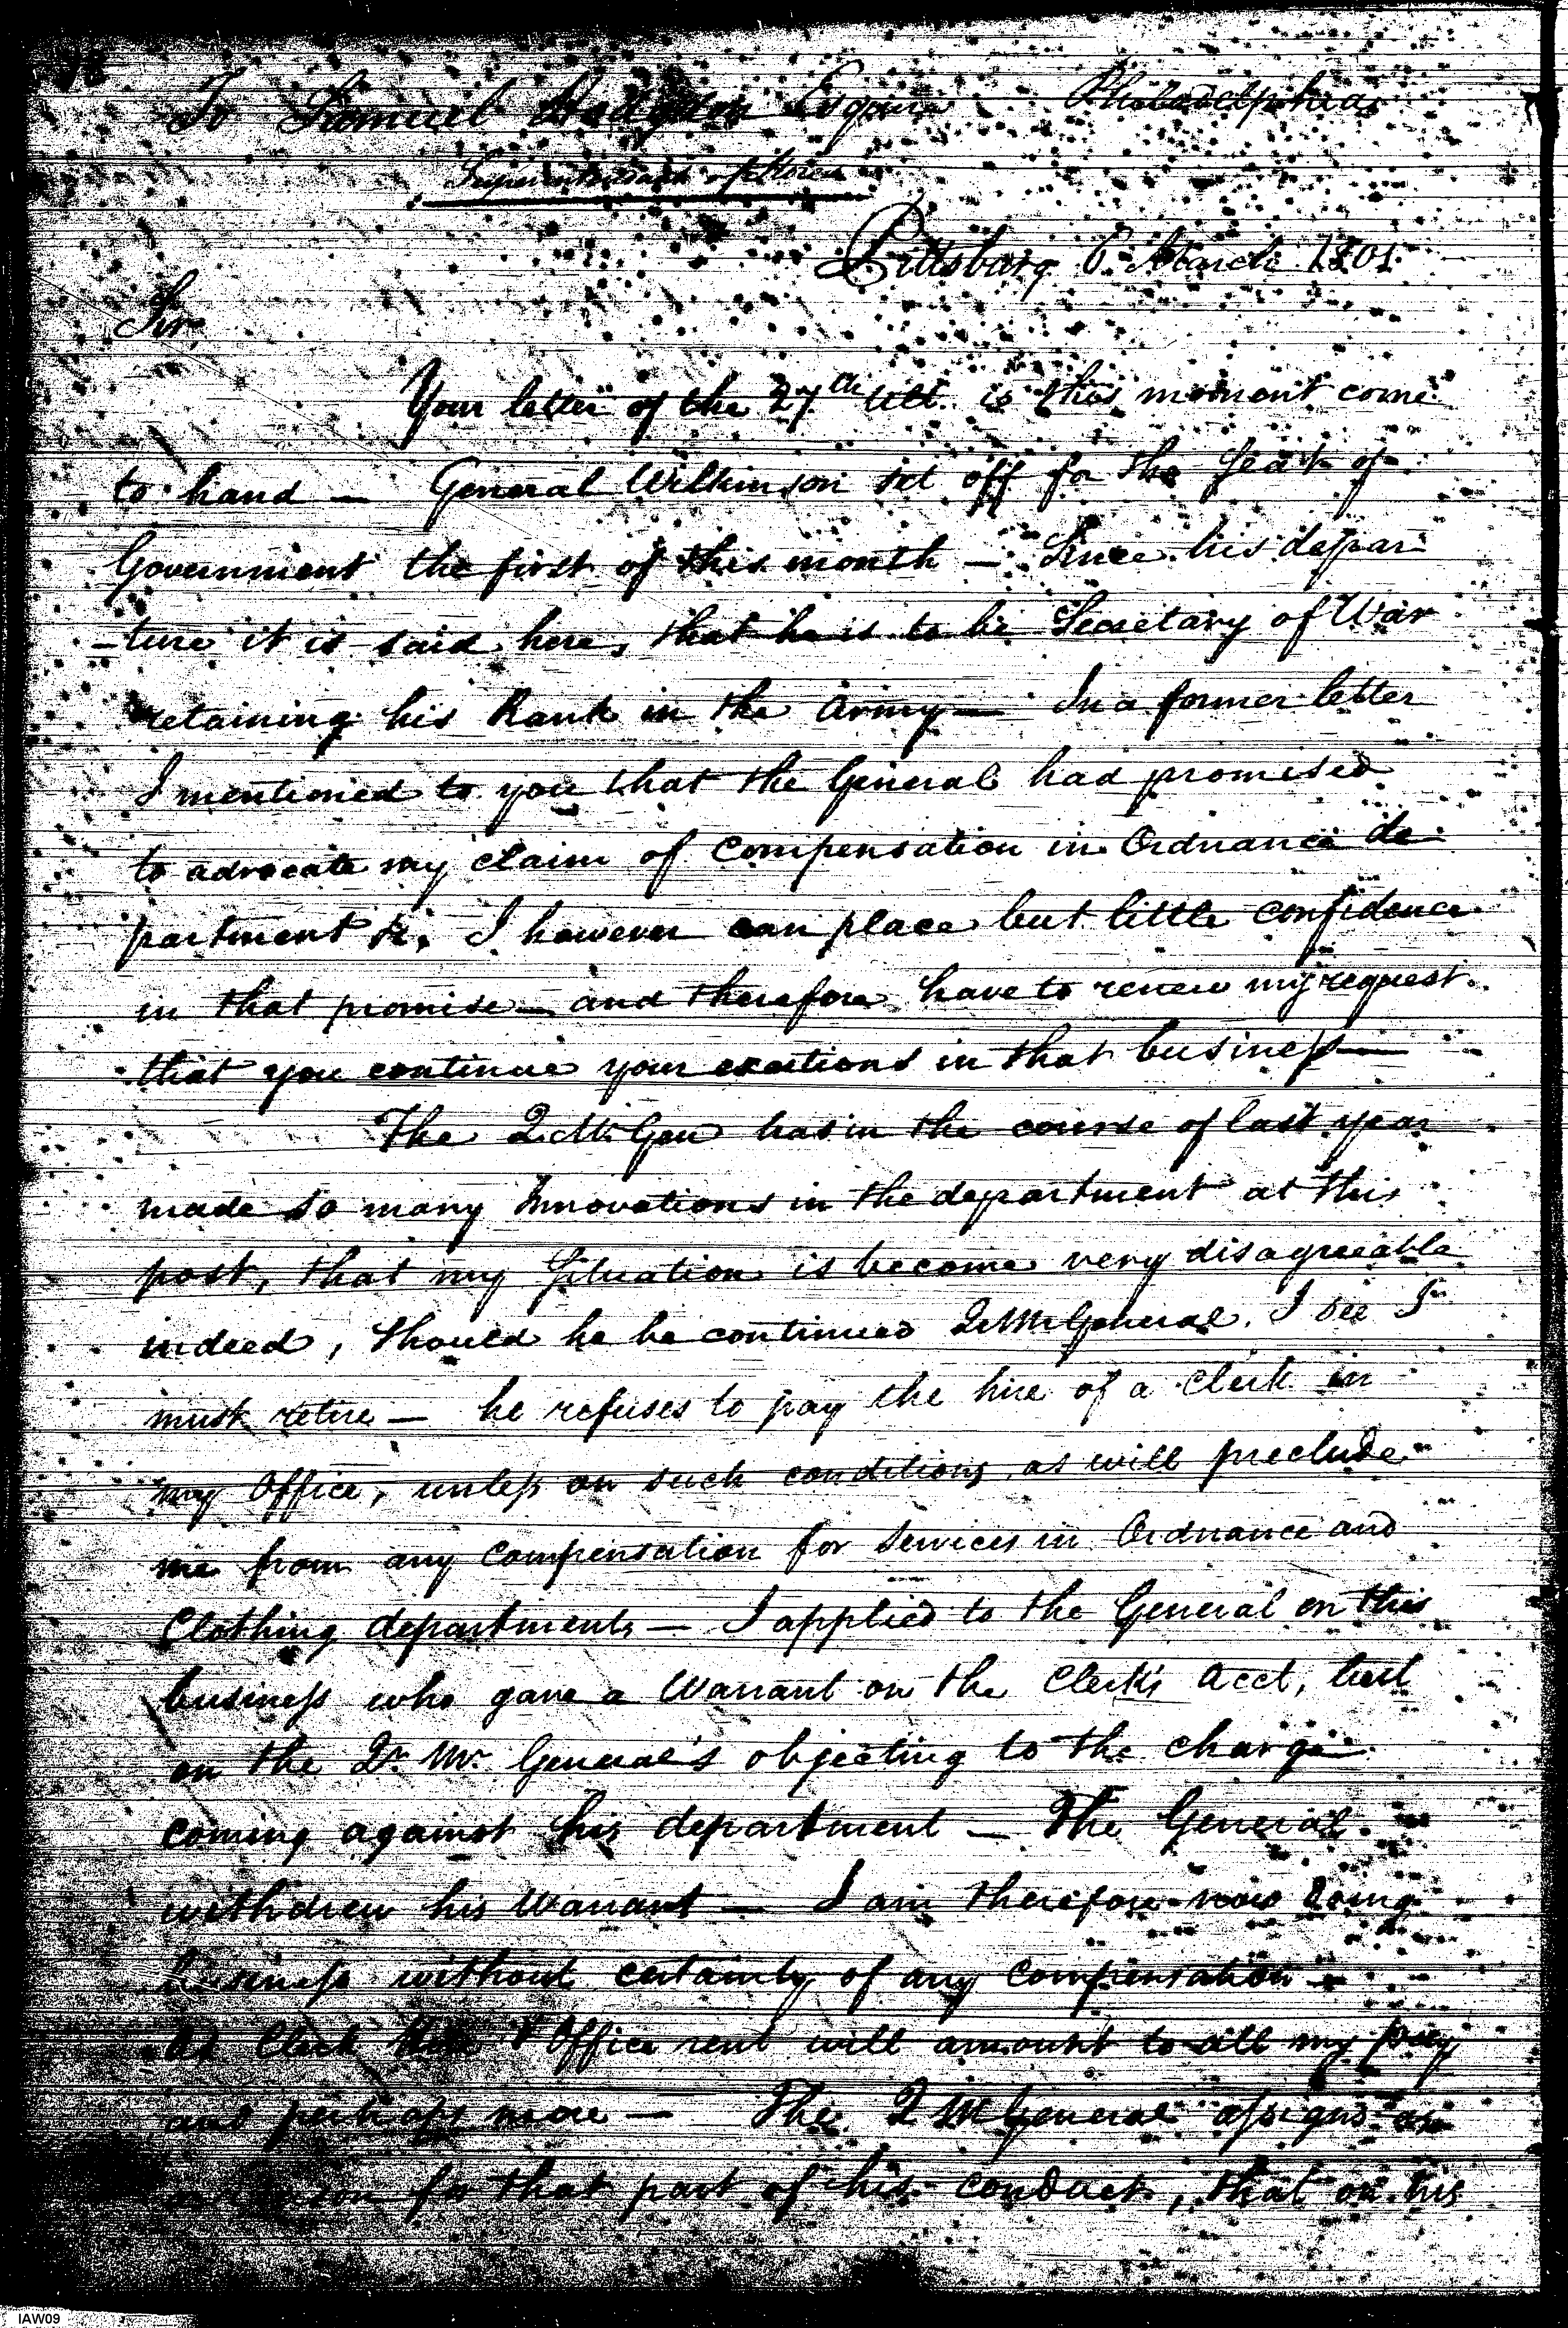 To Samuel Hodgdon Esquire Philadelphia
Superintendant of Stores
Pittsburg 6 March 1801
Sir,
Your letter of the 27th Ult. is this moment come
to hand — General Wilkinson set off for the Seat of
Government the first of this month — Since his depar
-ture it is said here, that he is to be Secretary of War
retaining his Rank in the Army — In a former letter
I mentioned to you that the General had promised
to advocate my claim of Compensation in Ordnance de
partment &c. I however can place but little confidence
in that promise — and therefore have to renew my request
that you continue your exertions in that business —
The Q. M. Gen has in the course of last year
made so many Innovations in the department at this
post, that my Situation is become very disagreeable
indeed, Should he be continued Qr Mr General. I see I
must retire — he refuses to pay the hire of a Clerk in
my Office, unless on such conditions, as will preclude
me from any Compensation for Services in Ordnance and
Clothing departments — I applied to the General on this
business who gave a Warrant on the Clerk's Acct, but
on the Qr. Mr. General's objecting to the charge
coming against his department — The General
withdrew his Warrant — I am therefore now doing
business without certainty of any Compensation —
as Clerk hire & Office rent will amount to all my pay
and perhaps more — The Q M General assigns as
for that part of his conduct, that on his
IAW09